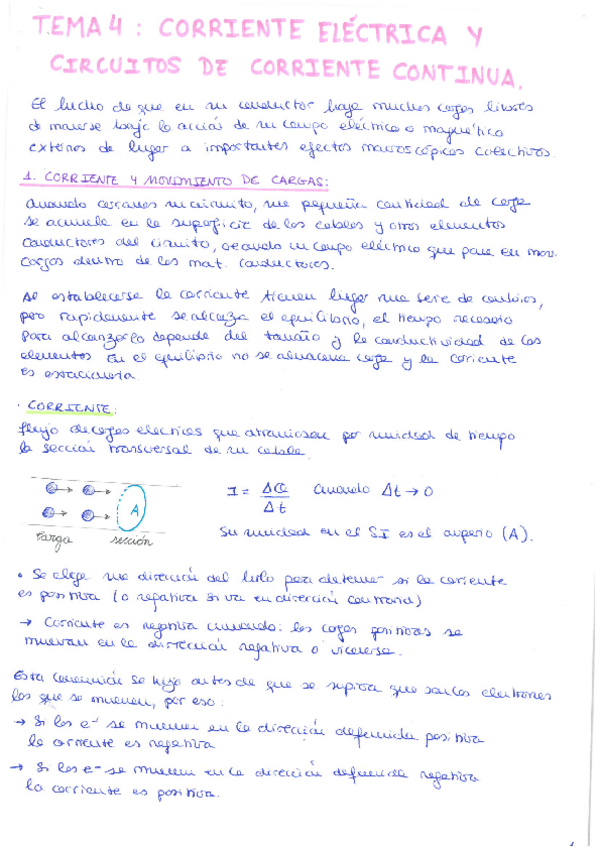 TEMA 4 : CORRIENTE ELÉCTRICA Y
CIRCUITOS DE CORRIENTE CONTINUA.
El hecho de que en un conductor haya muchas cargas libres
de moverse bajo la acción de un campo eléctrico o magnético
externos da lugar a importantes efectos macroscópicos colectivos.
1. CORRIENTE Y MOVIMIENTO DE CARGAS:
Cuando cerramos un circuito, una pequeña cantidad de carga
se acumula en la superficie de los cables y otros elementos
conductores del circuito, creando un campo eléctrico que pone en mov.
cargas dentro de los mat. conductores.
Al establecerse la corriente tienen lugar una serie de cambios,
pero rapidamente se alcanza el equilibrio, el tiempo necesario
para alcanzarlo depende del tamaño y la conductividad de los
elementos. En el equilibrio no se almacena carga y la corriente
es estacionaria.
· CORRIENTE:
flujo de cargas electricas que atraviesan por unidad de tiempo
la sección transversal de un cable.
I = ΔQ / Δt cuando Δt → 0
A
Su unidad en el SI es el amperio (A).
carga sección
• Se elige una dirección del hilo para determ. si la corriente
es positiva (o negativa si va en dirección contraria)
→ Corriente es negativa cuando: las cargas positivas se
muevan en la dirección negativa o viceversa.
Esta convención se hizo antes de que se supiera que son los electrones
los que se mueven, por eso:
→ Si los e⁻ se mueven en la dirección definida positiva
la corriente es negativa
→ Si los e⁻ se mueven en la dirección definida negativa
la corriente es positiva.